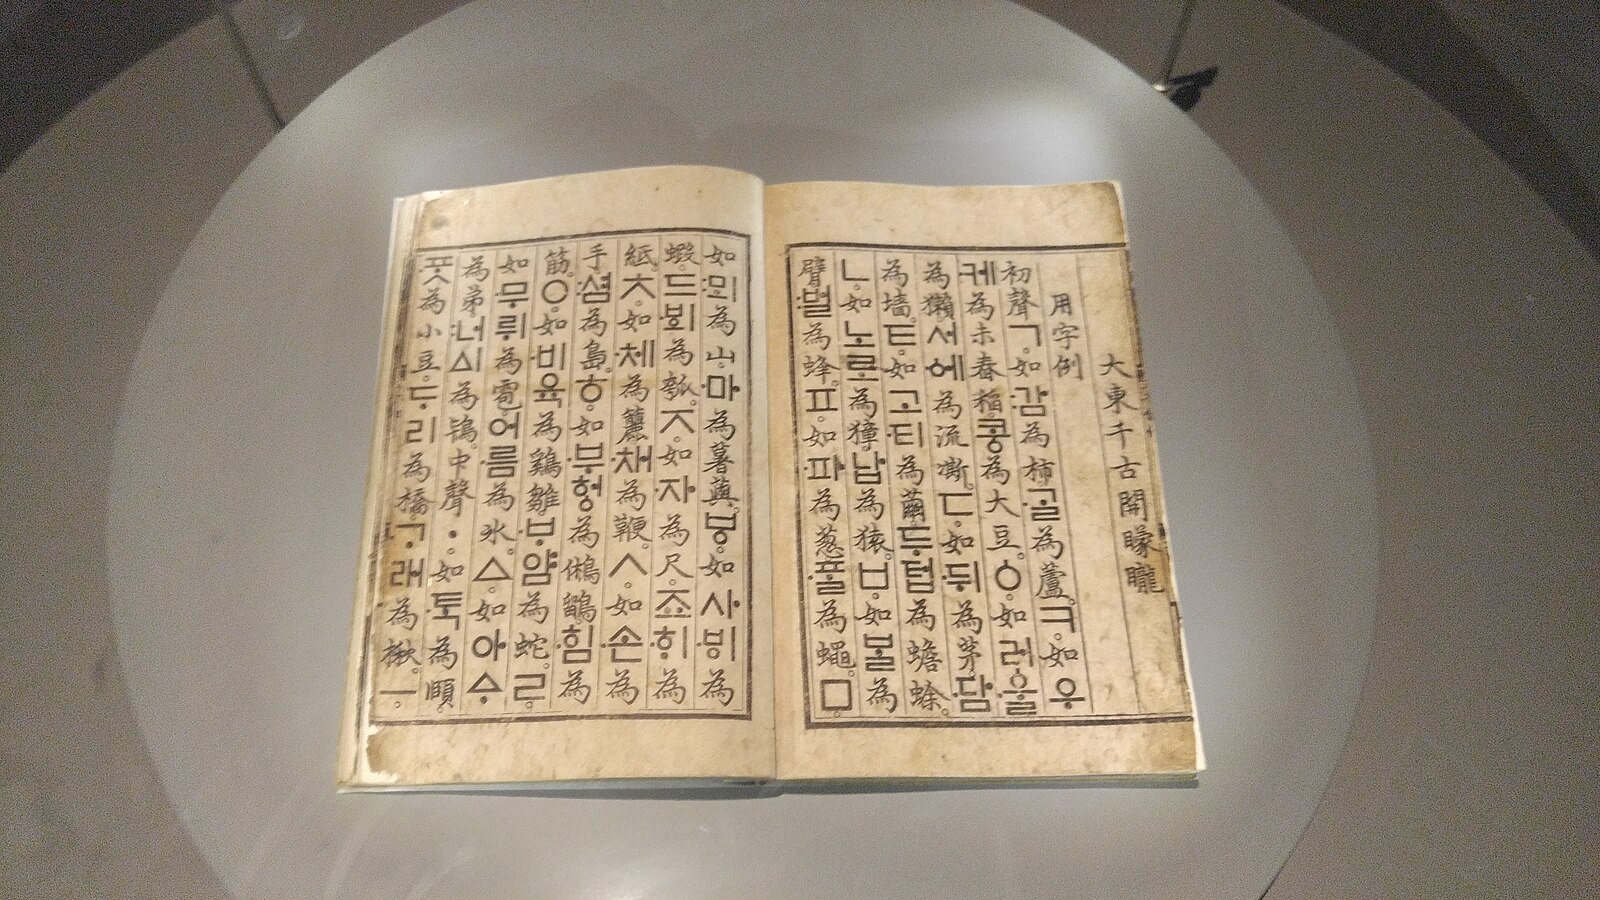 大東千古開矇矓
用字例
初聲ㄱ。如:감為柿。ᄀᆞᆯ為蘆。ㅋ。如우
케為未舂稻。콩為大豆。ㆁ。如러ᅌᅮᆯ
為獺。서ᅌᅦ為流凘。ㄷ。如뒤為茅。담
為墻。ㅌ。如고티為繭。두텁為蟾蜍。
ㄴ。如노로為獐。납為猿。ㅂ。如ᄇᆞᆯ為
臂。:벌為蜂。ㅍ。如파為葱。ᄑᆞᆯ為蠅。ㅁ。
如:뫼為山。마為薯藇。ㅸ。如사ᄫᅵ為
蝦。드ᄫᅴ為瓠。ㅈ。如자為尺。죠ᄒᆡ為
紙。ㅊ。如체為籭。채為鞭。ㅅ。如손為
手。:셤為島。ㅎ。如부헝為鵂鶹。힘為
筋。ㅇ。如비육為鷄雛。ᄇᆞ얌為蛇。ㄹ。
如무뤼為雹。어름為氷。ㅿ。如아ᅀᆞ
為弟。:너ᅀᅵ為鴇。中聲ㆍ。如ᄐᆞᆨ為頤。
ᄑᆞᆺ為小豆。ᄃᆞ리為橋。ᄀᆞ래為楸。ㅡ。